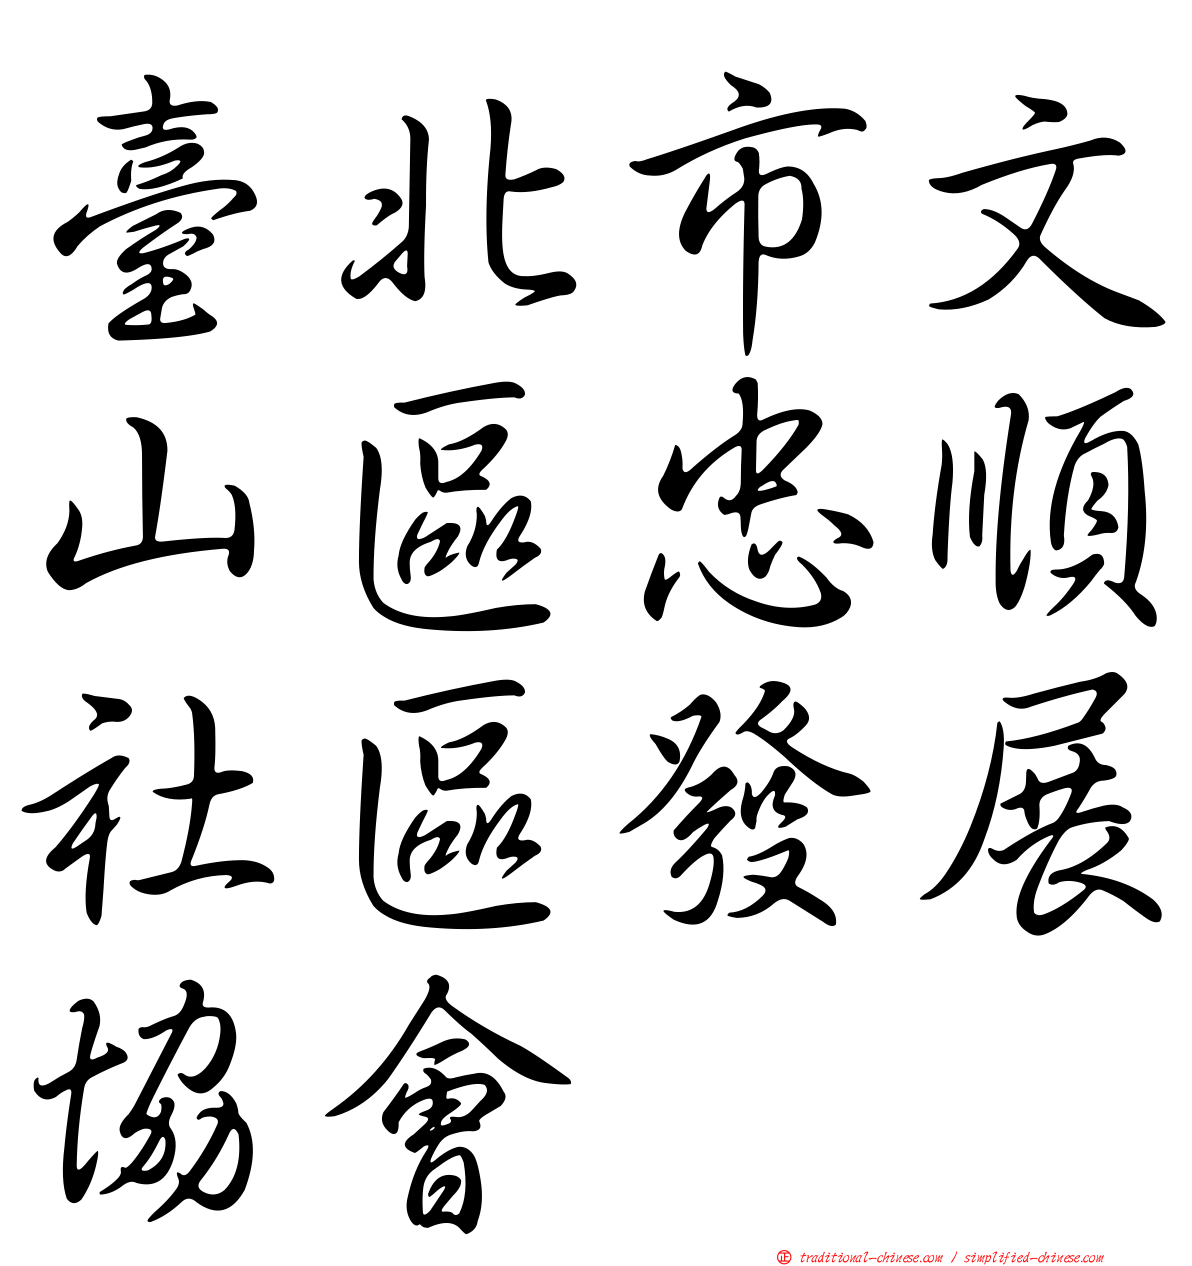 臺北市文
山區忠順
社區發展
協會
正 traditional-chinese.com / simplified-chinese.com